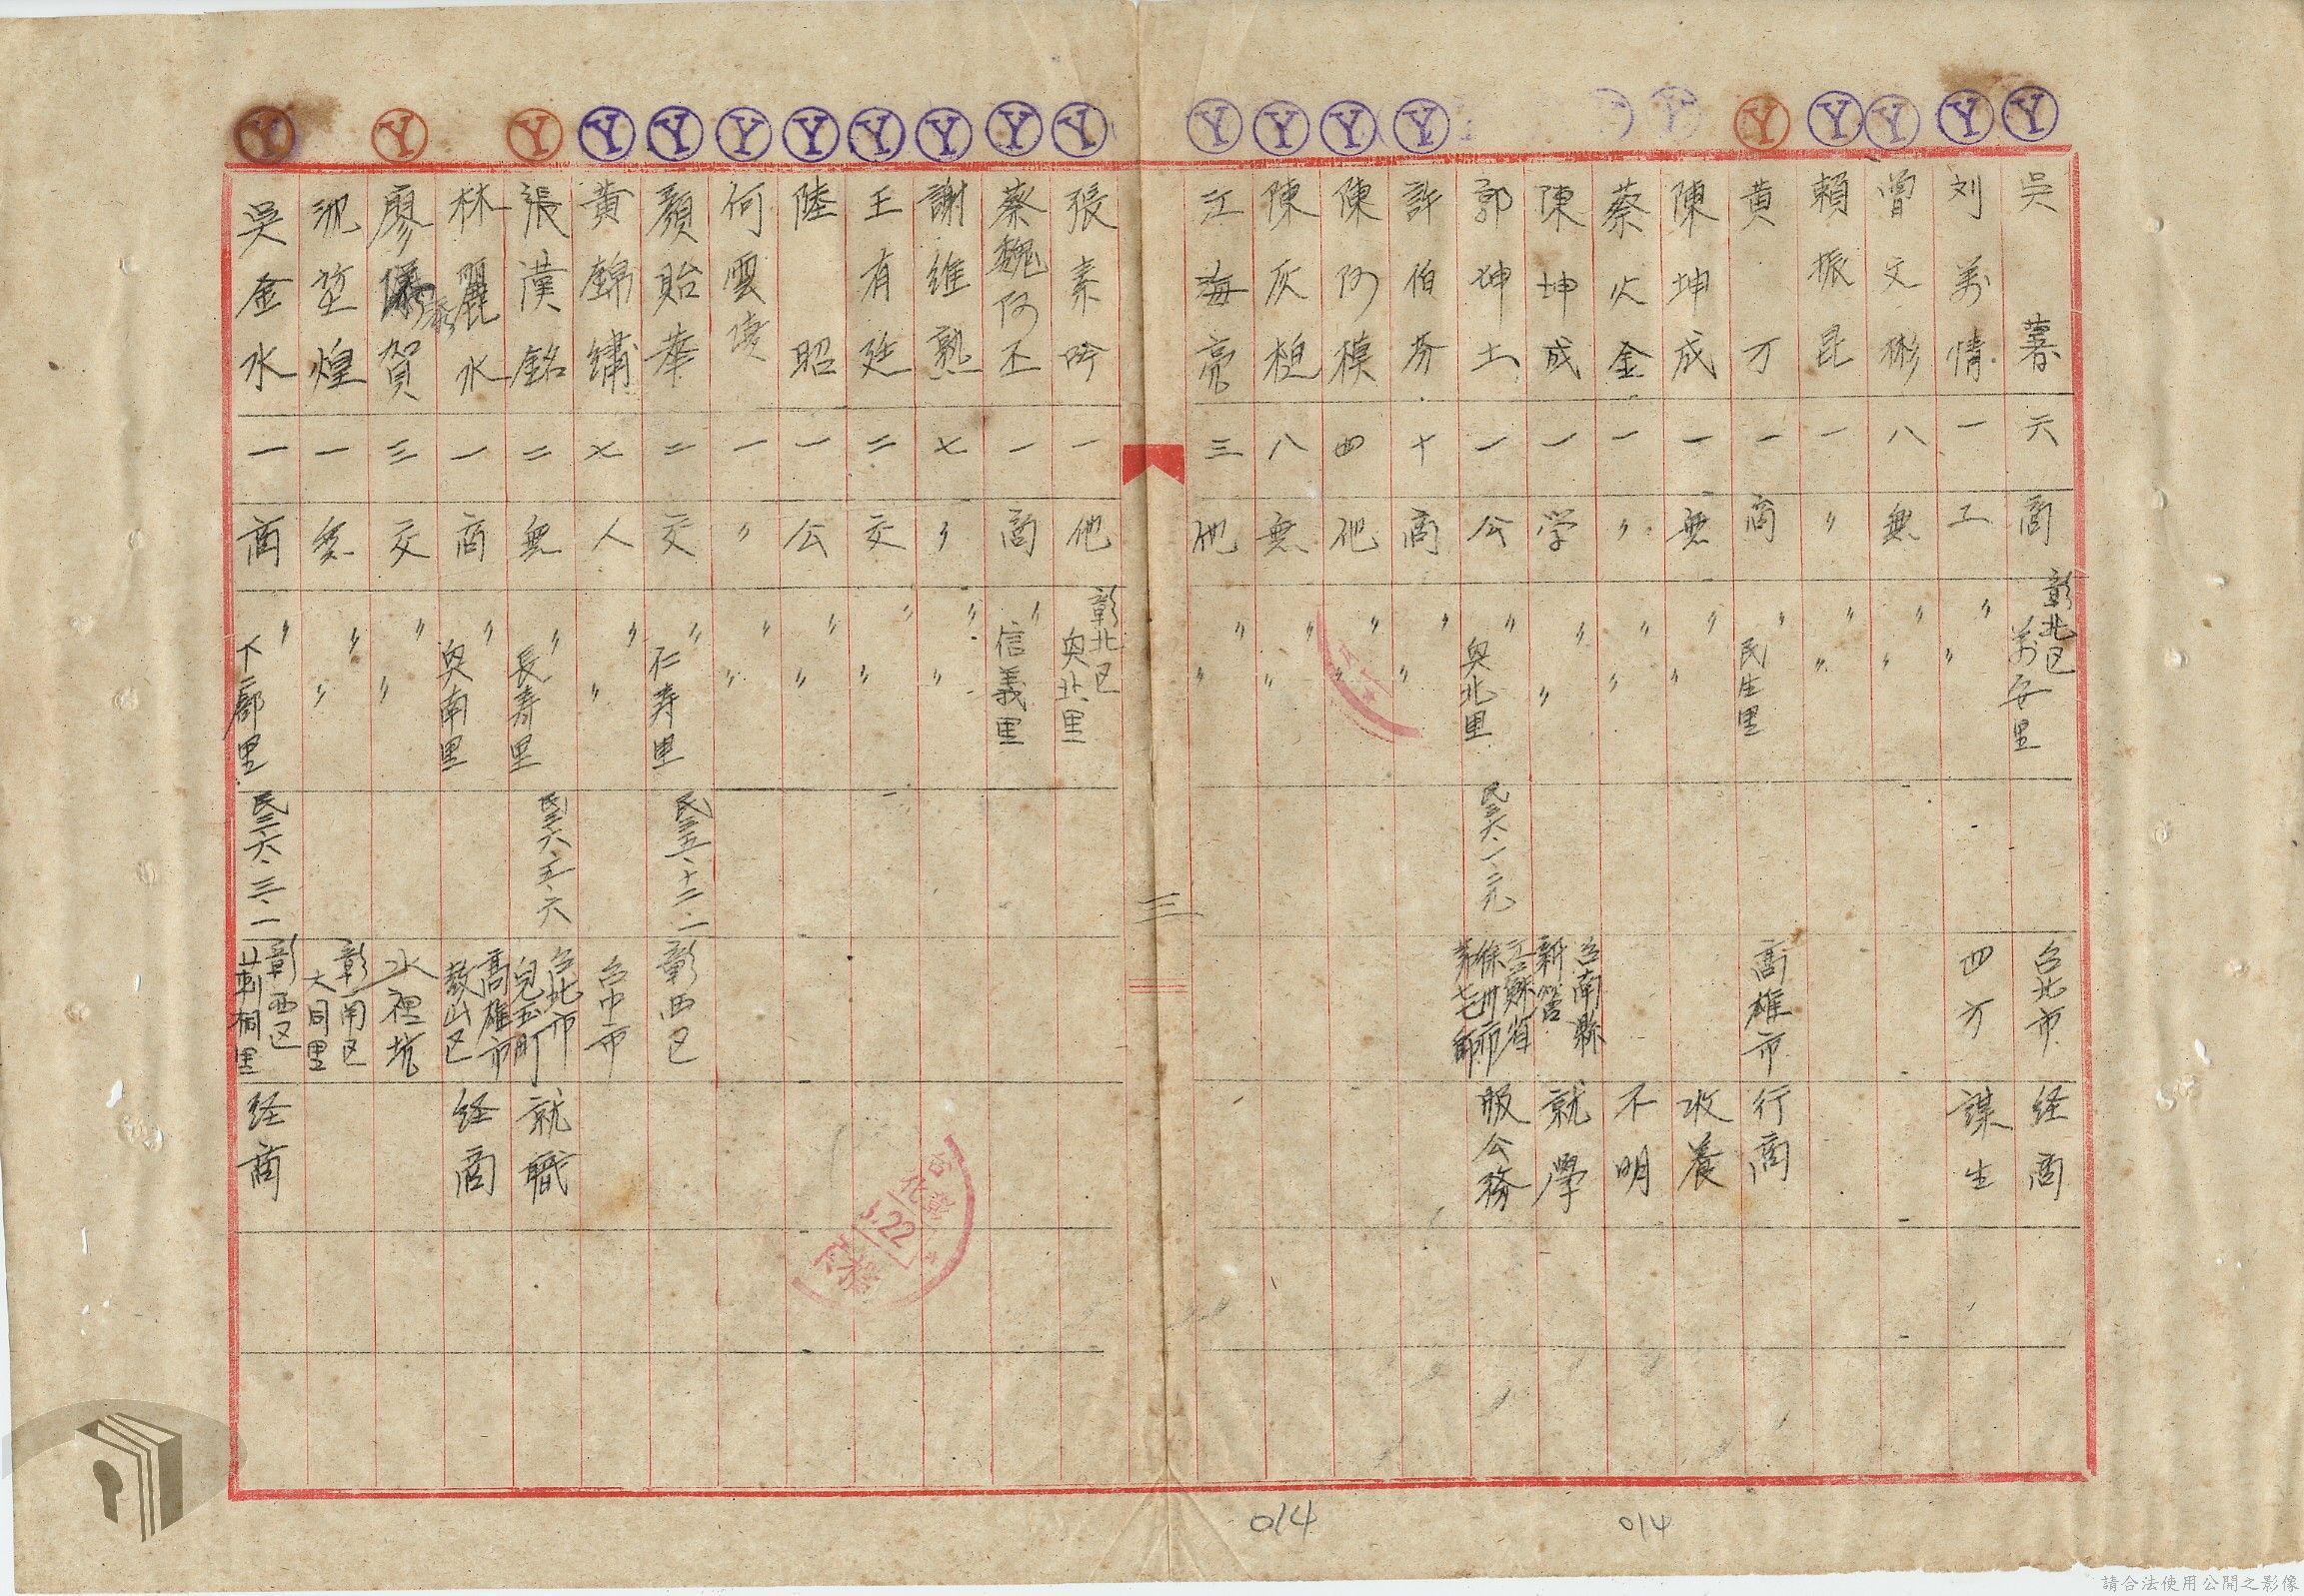 吳 暮 六 商 彰北区 萬安里 台北市 経商
刘萬情 一 工 〃 〃 四方 謀生
曾文彬 八 無 〃 〃
賴振昆 一 〃 〃 〃
黄 万 一 商 〃 民生里 高雄市 行商
陳坤成 一 無 〃 〃 收養
蔡火金 一 〃 〃 〃 不明
陳坤成 一 学 〃 〃 台南縣 新營 就學
郭坤土 一 公 〃 與北里 江蘇省 徐州市 服公務
許伯芬 十 商 〃 〃
陳阿模 四 他 〃
陳灰 八 無 〃 〃
江海亮 三 他 〃 〃
三
張素吟 一 他 彰北区 與北里
蔡魏阿丕 一 商 〃 信義里
謝維熟 七 〃 〃 〃
王有廷 二 交 〃 〃
陸 昭 一 公 〃 〃
何雲 一 〃 〃 〃
顏貽華 二 交 〃 仁寿里 民三五、十二、一 彰西区
黄錦繡 七 人 〃 〃 台中市
張漢銘 二 無 〃 長寿里 民三六、五、六 台北市 兒玉町 就職
林麗水 一 商 〃 與南里 高雄市 鼓山区 経商
廖 賀 三 交 〃 〃 水裡坑
沈 煌 一 〃 〃 彰南区 大同里
吳金水 一 商 〃 下廍里 民三六、三、一 彰西区 莿桐里 経商
22
014
014
請合法使用公開之影像